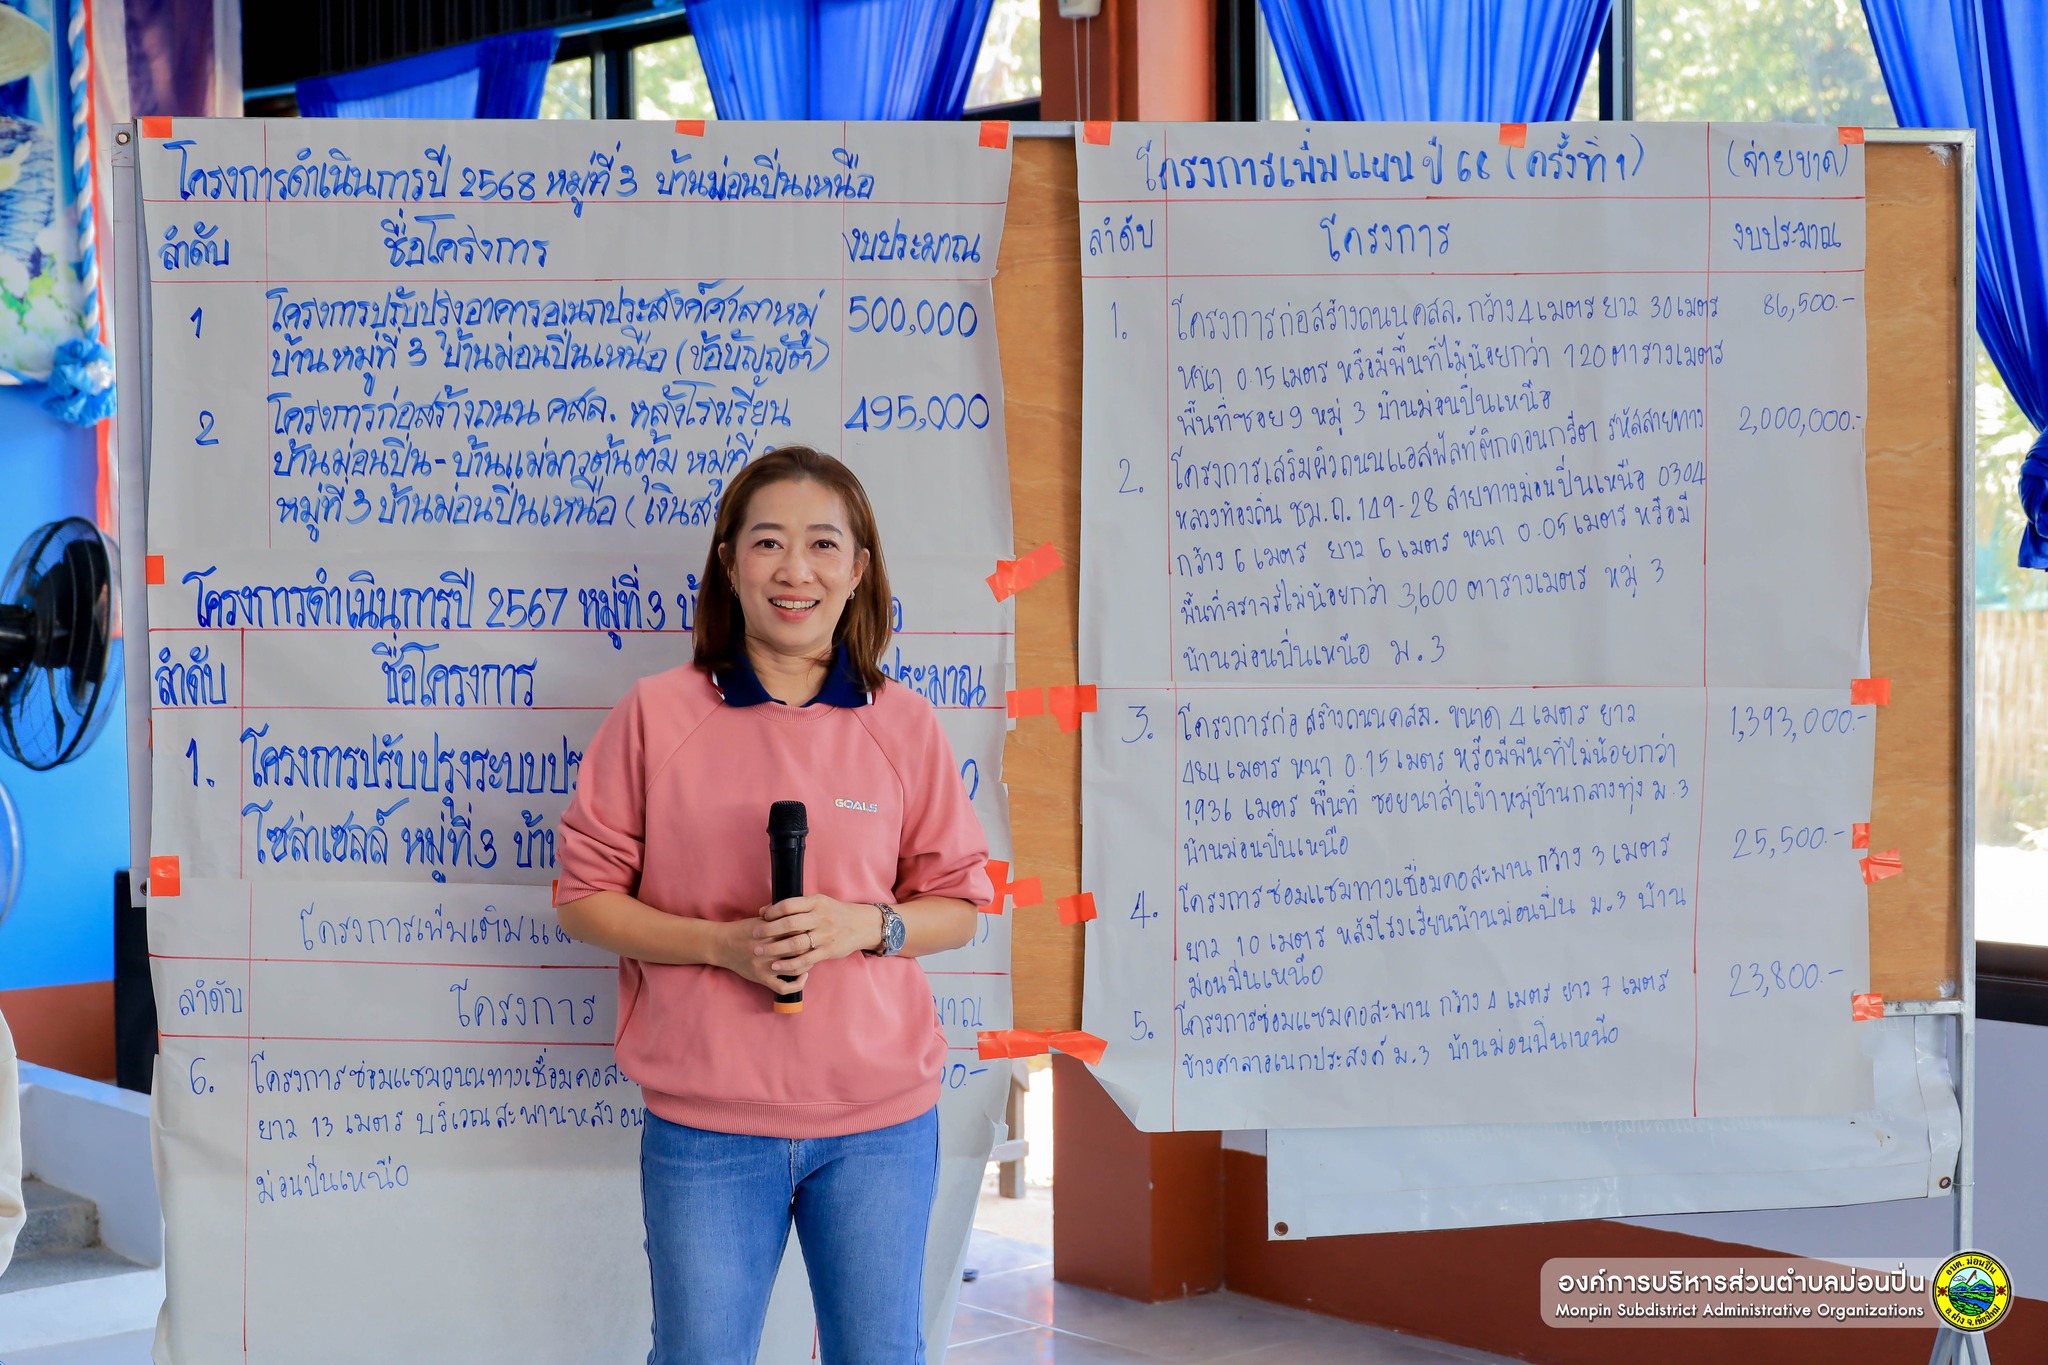 โครงการดำเนินการปี 2568 หมู่ที่ 3 บ้านม่อนปิ่นเหนือ
ลำดับ ชื่อโครงการ งบประมาณ
1 โครงการปรับปรุงอาคารอเนกประสงค์ศาลาหมู่ 500,000
บ้านหมู่ที่ 3 บ้านม่อนปิ่นเหนือ (ข้อบัญญัติ)
2 โครงการก่อสร้างถนน คสล. หลังโรงเรียน 495,000
บ้านม่อนปิ่น - บ้านแม่มาวต้นตุ้ม หมู่ที่
หมู่ที่ 3 บ้านม่อนปิ่นเหนือ (เงินสะ
โครงการดำเนินการปี 2567 หมู่ที่ 3
ลำดับ ชื่อโครงการ ประมาณ
1. โครงการปรับปรุงระบบประ
โซล่าเซลล์ หมู่ที่ 3 บ้าน
โครงการเพิ่มเติมแผ
ลำดับ โครงการ มาณ
6. โครงการซ่อมแซมถนนทางเชื่อมคอสะ
ยาว 13 เมตร บริเวณสะพานหลัง
ม่อนปิ่นเหนือ
โครงการเพิ่มแผนปี 68 (ครั้งที่ 1) (จ่ายขาด)
ลำดับ โครงการ งบประมาณ
1. โครงการก่อสร้างถนน คสล. กว้าง 4 เมตร ยาว 30 เมตร 86,500.-
หนา 0.15 เมตร หรือมีพื้นที่ไม่น้อยกว่า 120 ตารางเมตร
พื้นที่ซอย 9 หมู่ 3 บ้านม่อนปิ่นเหนือ
2. โครงการเสริมผิวถนนแอสฟัลท์ติกคอนกรีต รหัสสายทาง 2,000,000.-
หลวงท้องถิ่น ชม.ถ. 149-28 สายทางม่อนปิ่นเหนือ 0304
กว้าง 6 เมตร ยาว 6 เมตร หนา 0.05 เมตร หรือมี
พื้นที่จราจรไม่น้อยกว่า 3,600 ตารางเมตร หมู่ 3
บ้านม่อนปิ่นเหนือ ม.3
3. โครงการก่อสร้างถนนคสล. ขนาด 4 เมตร ยาว 1,393,000.-
484 เมตร หนา 0.15 เมตร หรือมีพื้นที่ไม่น้อยกว่า
1,936 เมตร พื้นที่ ซอยนาสำเข้าหมู่บ้านกลางทุ่ง ม.3
บ้านม่อนปิ่นเหนือ
4. โครงการซ่อมแซมทางเชื่อมคอสะพาน กว้าง 3 เมตร 25,500.-
ยาว 10 เมตร หลังโรงเรียนบ้านม่อนปิ่น ม.3 บ้าน
ม่อนปิ่นเหนือ
5. โครงการซ่อมแซมคอสะพาน กว้าง 4 เมตร ยาว 7 เมตร 23,800.-
ข้างศาลาอเนกประสงค์ ม.3 บ้านม่อนปิ่นเหนือ
GOALS
องค์การบริหารส่วนตำบลม่อนปิ่น
Monpin Subdistrict Administrative Organizations
อบต. ม่อนปิ่น
อ.ฝาง จ.เชียงใหม่